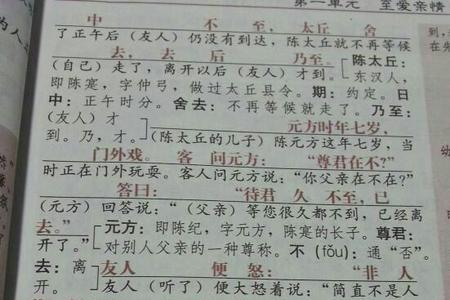 第一单元 至爱亲情
中 不至，太丘 舍
了正午后（友人）仍没有到达，陈太丘就不再等候
去，去 后 乃至。 陈太丘：
（自己）走了，离开以后（友人）才到。 东汉人，
即陈寔，字仲弓，做过太丘县令。期：约定。日
中：正午时分。舍去：不再等候就走了。乃至：
（友人）才 元方时年七岁，
到。乃，才。 （陈太丘的儿子）陈元方这年七岁，当
门外戏。客 问元方： “尊君在不？”
时正在门外玩耍。客人问元方说：“你父亲在不在？”
答曰： “待君 久 不至，已
（元方）回答说：“（父亲）等您很久都不到，已经离
去。” 元方：即陈纪，字元方，陈寔的长子。尊君：
开了。” 对别人父亲的一种尊称。不（fǒu）：通“否”。
去：离 友人 便 怒： “非 人
开。 友人（听了）便大怒着说：“简直不是人